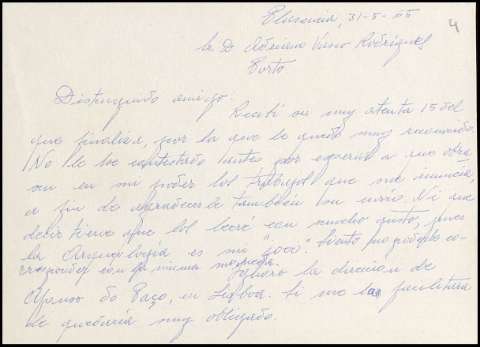 Plasencia, 31-5-55
4
Sr. D. Adriano Vasco Rodrigues
Porto
Distinguido amigo:
Recibí su muy atenta 15 del
que finaliza, por la que le quedo muy reconocido.
No le he contestado antes por esperar a que obra
sen en mi poder los trabajos que me anuncia,
a fin de agradecerle también su envío. Ni que
decir tiene que los leeré con mucho gusto, pues
la Arqueología es mi "goce". Siento no poderle co-
rresponder con la misma moneda.
Ignoro la dirección de
Afonso do Paço, en Lisboa. Si me la facilitara
le quedaría muy obligado.